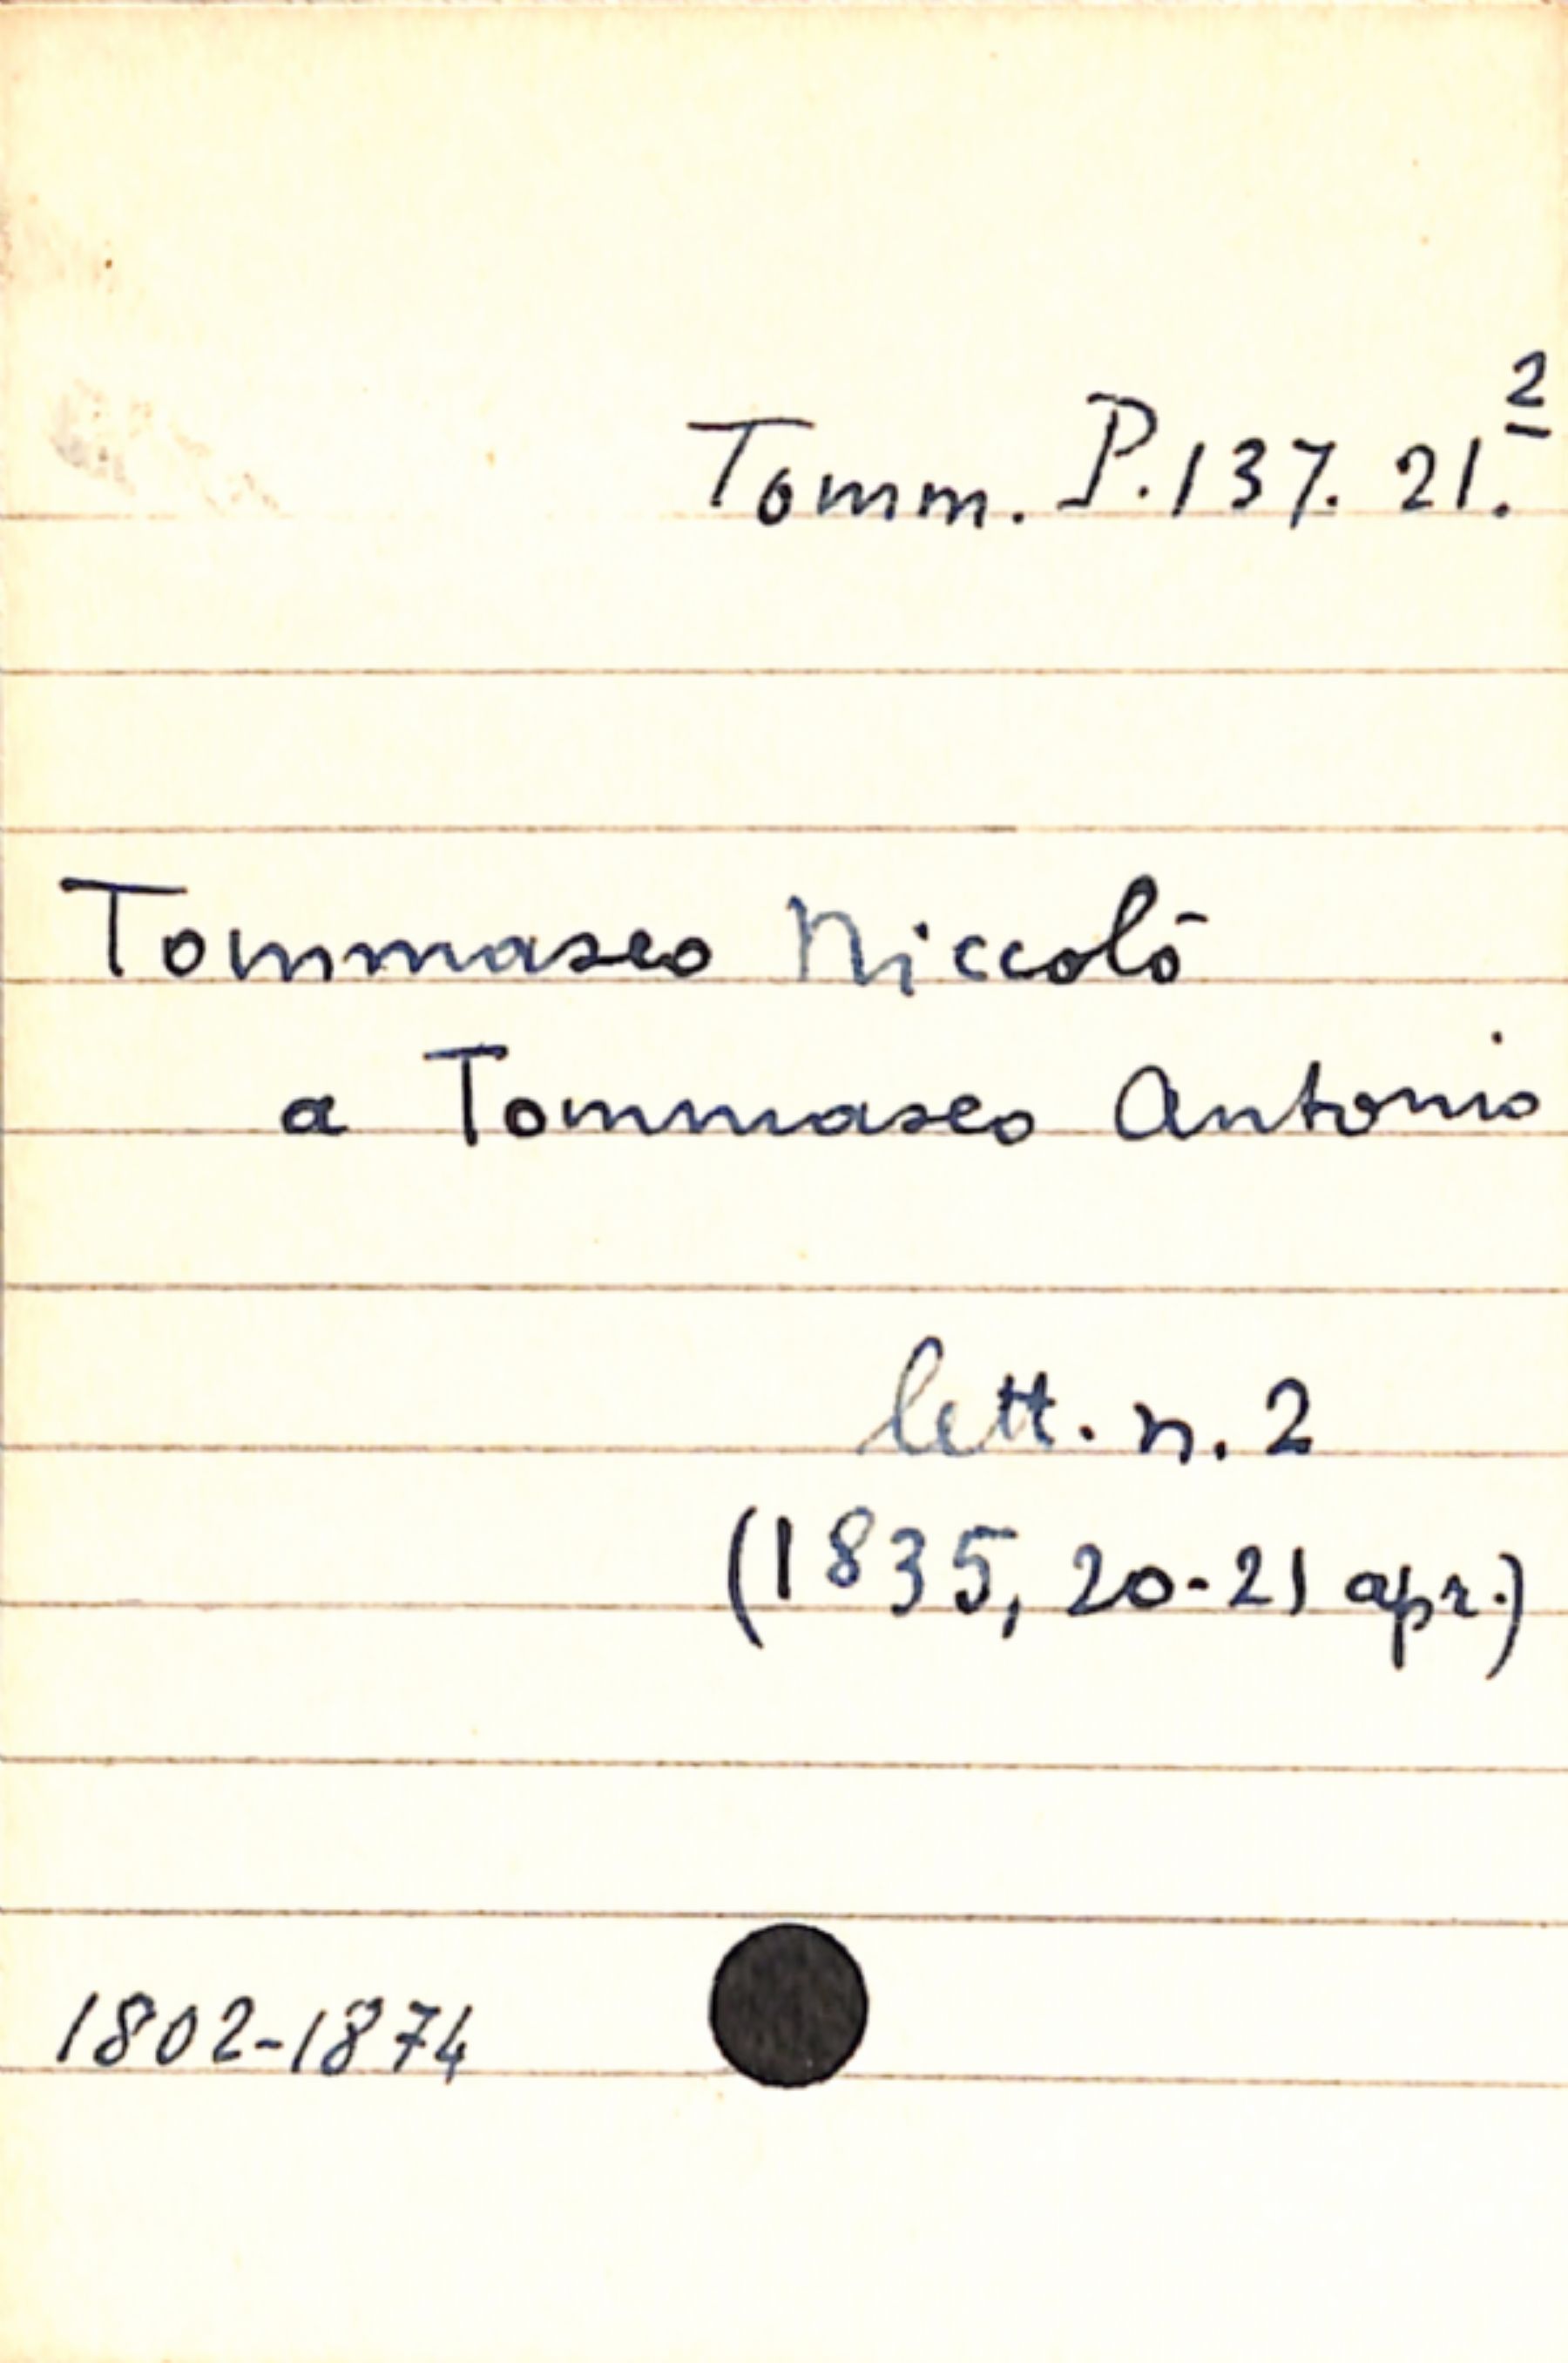 Tomm. P.137. 21.²
Tommaseo Niccolò
a Tommaseo Antonio
lett. n. 2
(1835, 20-21 apr.)
1802-1874